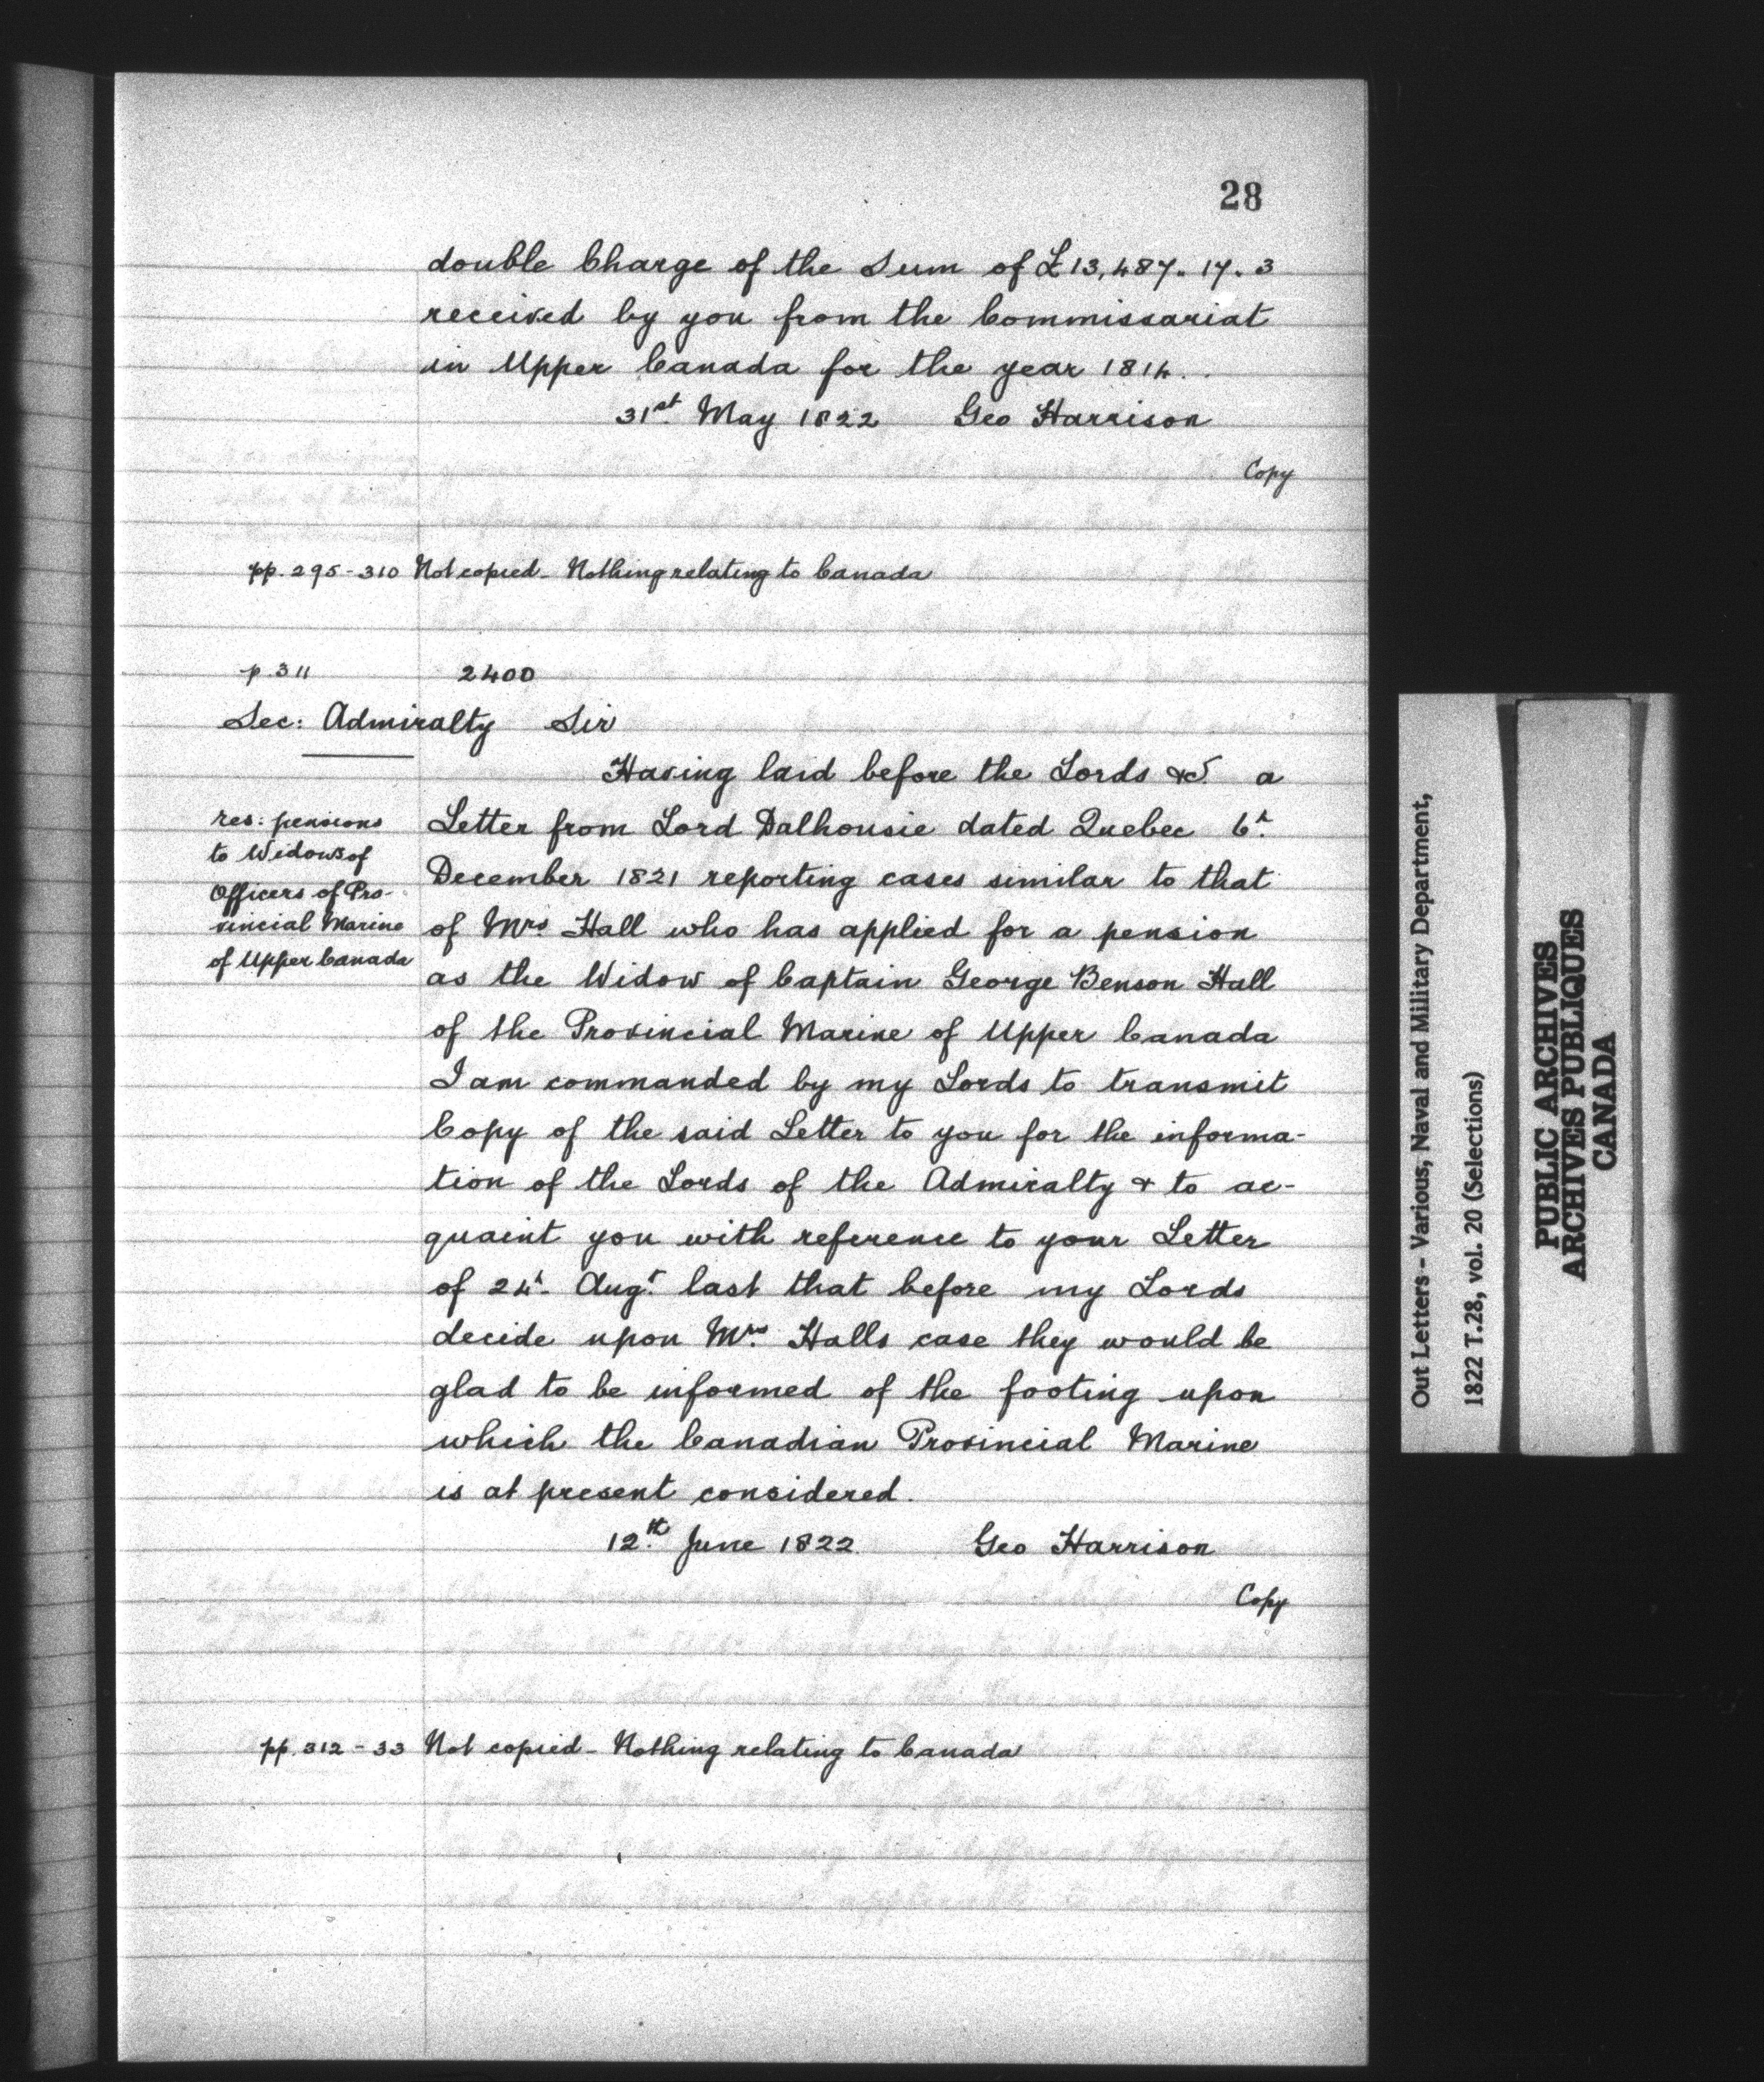 28
double Charge of the Sum of £13,487.. 17. 3
received by you from the Commissariat
in Upper Canada for the year 1814..
31st. May 1822 Geo Harrison
Copy
pp. 295-310 Not copied - Nothing relating to Canada
p. 311 2400
Sec: Admiralty Sir
Having laid before the Lords &c. a
res: pensions
to Widows of
Officers of Pro-
vincial Marine
of Upper Canada
Letter from Lord Dalhousie dated Quebec 6h.
December 1821 reporting cases similar to that
of Mrs. Hall who has applied for a pension
as the Widow of Captain George Benson Hall
of the Provincial Marine of Upper Canada
I am commanded by my Lords to transmit
Copy of the said Letter to you for the informa-
tion of the Lords of the Admiralty & to ac-
quaint you with reference to your Letter
of 24h. Augt. last that before my Lords
decide upon Mrs. Halls case they would be
glad to be informed of the footing upon
which the Canadian Provincial Marine
is at present considered.
12th. June 1822 Geo Harrison
Copy
pp. 312-33 Not copied - Nothing relating to Canada
Out Letters – Various, Naval and Military Department,
1822 T.28, vol. 20 (Selections)
PUBLIC ARCHIVES
ARCHIVES PUBLIQUES
CANADA